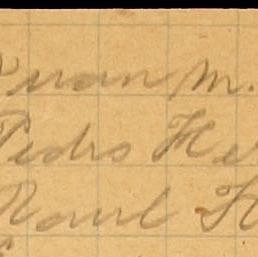 Juan M.
Pedro He
Raul H